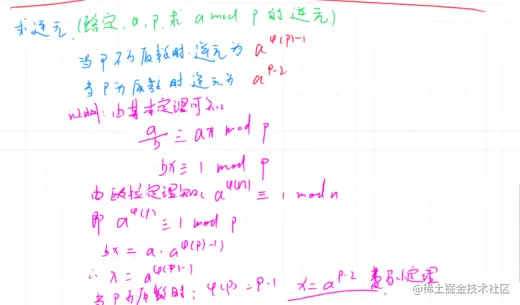 求逆元 (给定 a, p, 求 a mod p 的逆元)
当 P 不为质数时 逆元为 a^φ(p)-1
当 P 为质数时 逆元为 a^p-2
证明: 由基本定理可知
a/b ≡ ax mod p
bx ≡ 1 mod p
由欧拉定理知, a^φ(n) ≡ 1 mod n
即 a^φ(p) ≡ 1 mod p
bx = a · a^φ(p)-1
∴ x = a^φ(p)-1
当 P 为质数时: φ(p) = p-1 x = a^p-2 费马小定理
@稀土掘金技术社区